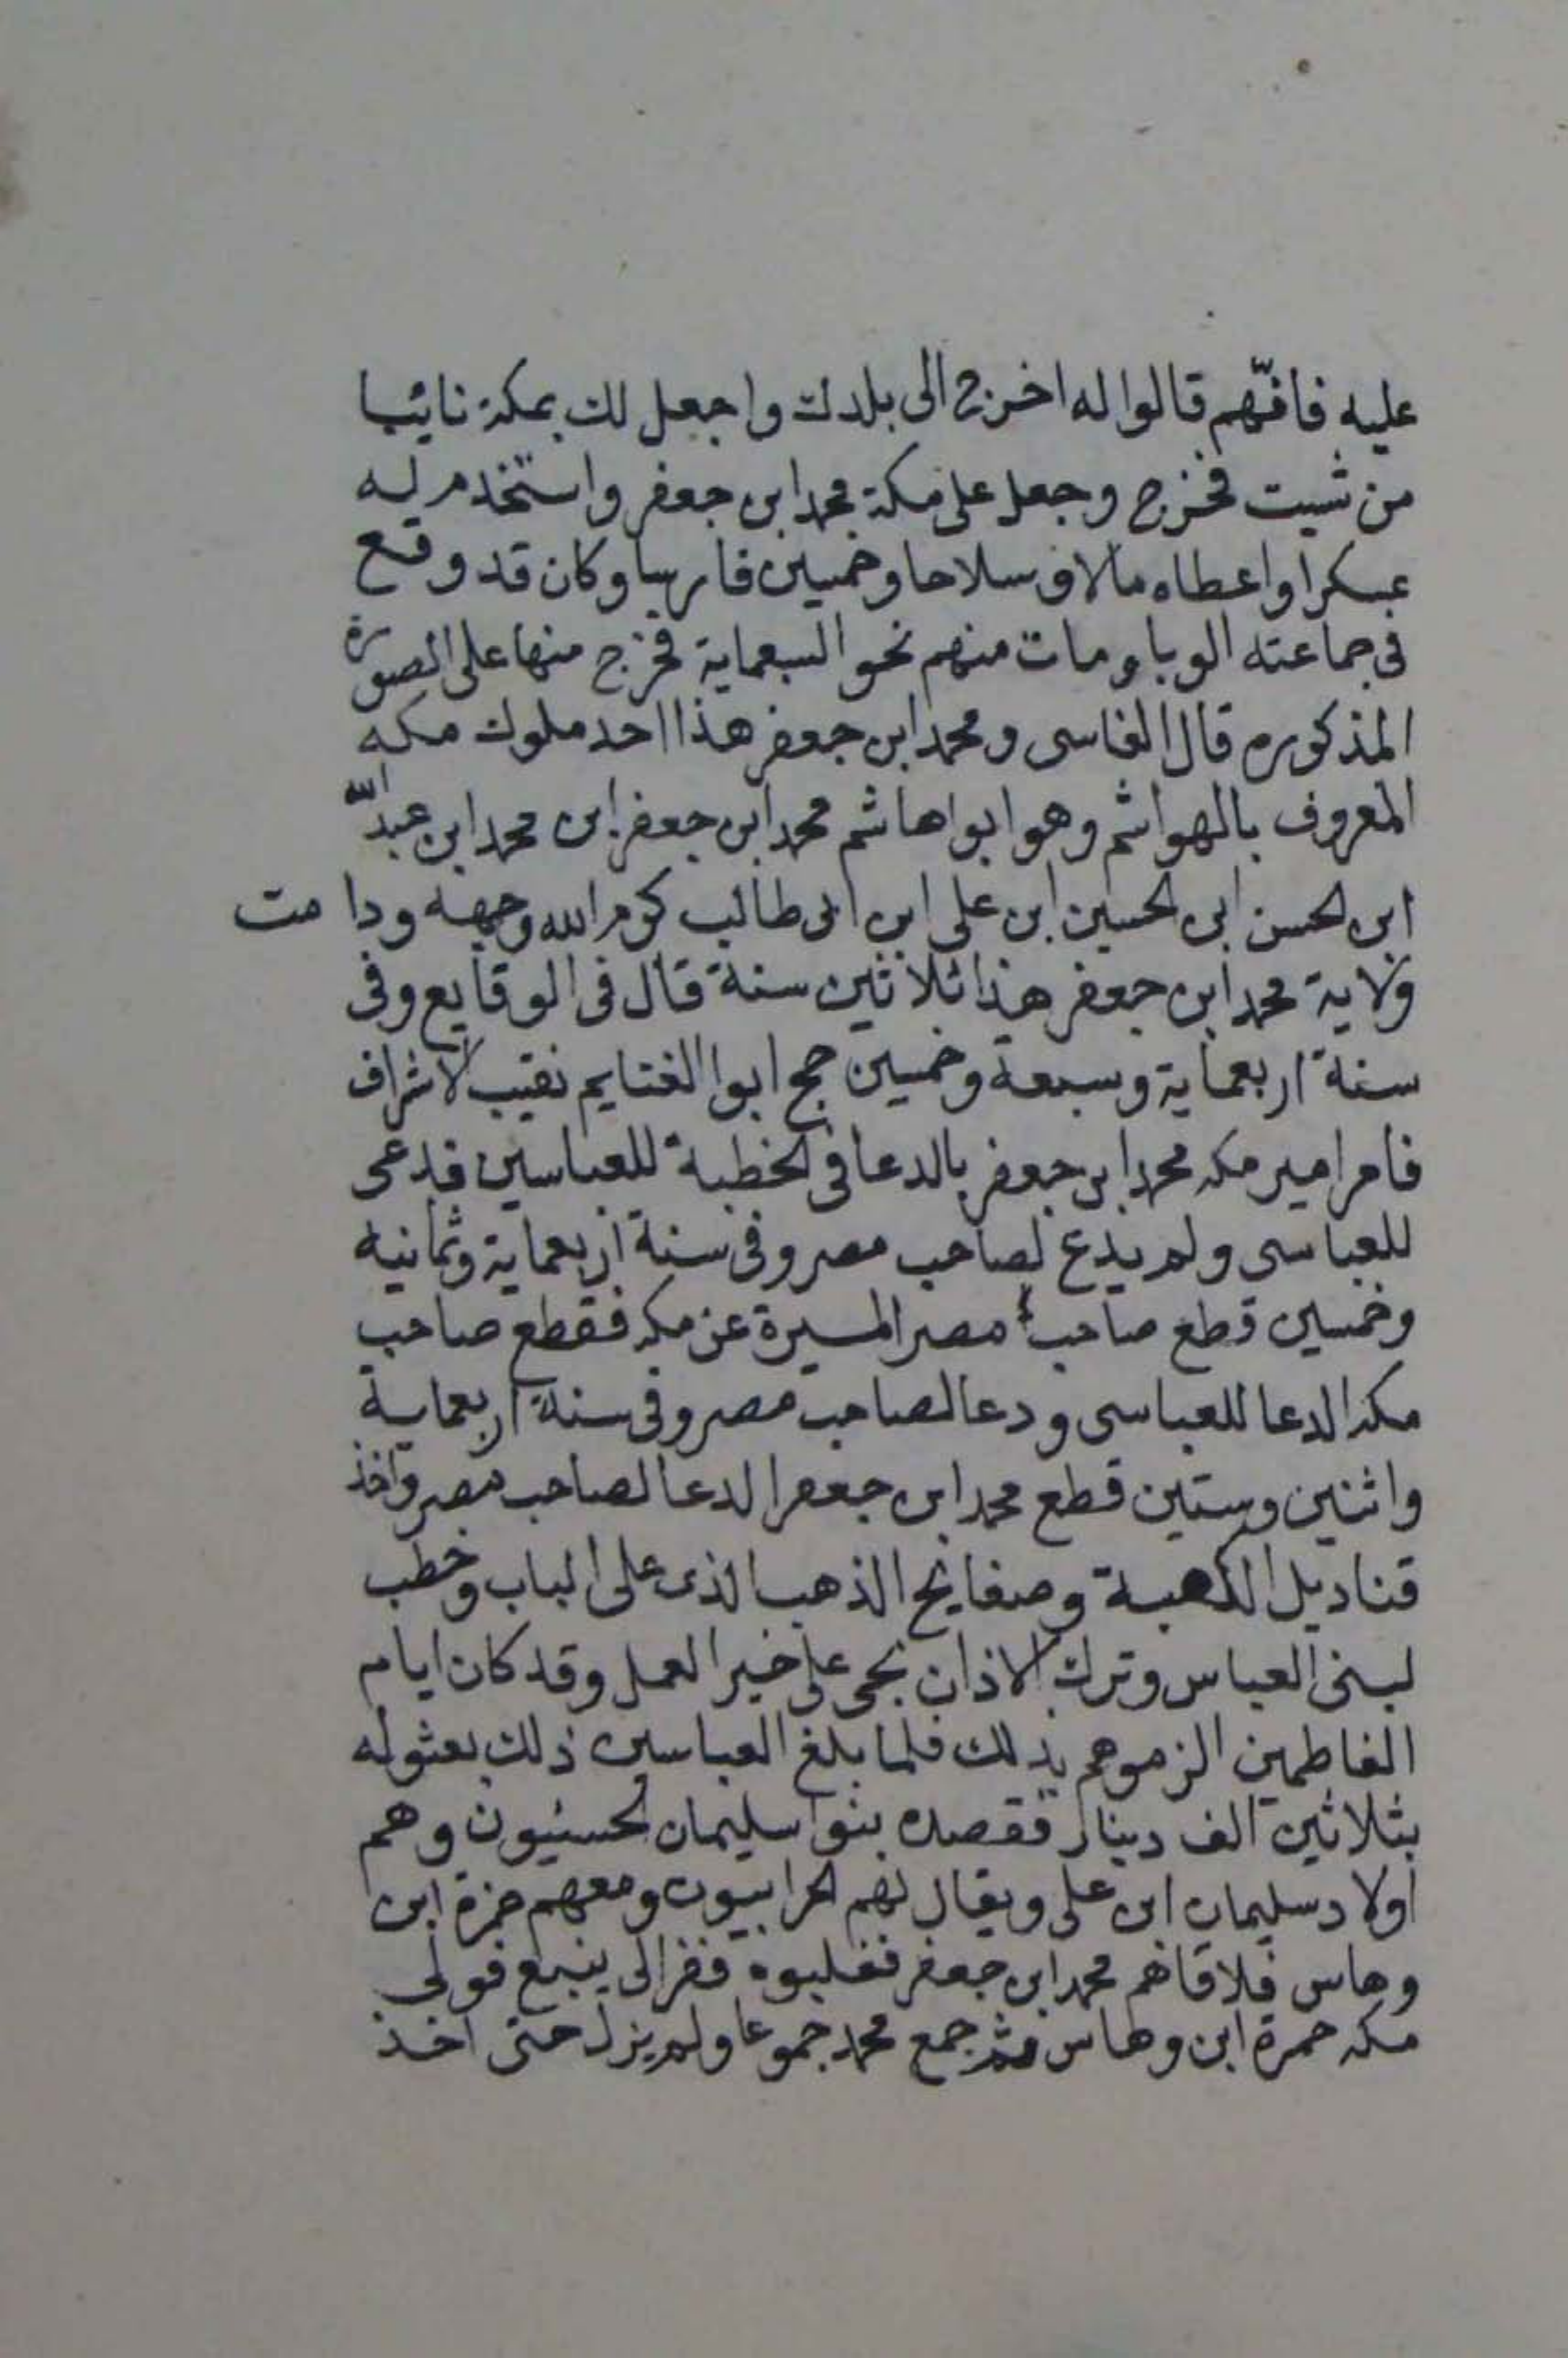 عليه فانّهم قالوا له اخرج الى بلدك واجعل لك بمكة نائبا
من شيت فخرج وجعل على مكة محمد ابن جعفر واستخدم له
عسكرا واعطاه مالا وسلاحا وخمسين فارسا وكان قد وقع
فى جماعته الوبا ومات منهم نحو السبعماية فخرج منها على الصورة
المذكوره قال الفاسى ومحمد ابن جعفر هذا احد ملوك مكه
المعروف بالهواشم وهو ابوا هاشم محمد ابن جعفر ابن محمد ابن عبد الله
ابن الحسن ابى الحسين ابن على ابن ابى طالب كرم الله وجهه ودامت
ولاية محمد ابن جعفر هذا ثلاثين سنة قال فى الوقايع وفى
سنة اربعماية وسبعة وخمسين حج ابوا الغنايم نقيب الاشراف
فامر امير مكه محمد ابن جعفر بالدعا فى الخطبة للعباسين فدعى
للعباسى ولم يدع لصاحب مصر وفى سنة اربعماية وثمانيه
وخمسين قطع صاحب مصر المسيرة عن مكه فقطع صاحب
مكه الدعا للعباسى ودعا لصاحب مصر وفى سنة اربعماية
واثنين وستين قطع محمد ابن جعفر الدعا لصاحب مصر واخذ
قناديل الكعبة وصفايح الذهب الذى على الباب وخطب
لبنى العباس وترك الاذان بحى على خير العمل وقد كان ايام
الفاطمين الزموهم بذلك فلما بلغ العباسين ذلك بعثوله
بثلاثين الف دينار فقصده بنوا سليمان الحسنيون وهم
اولاد سليمان ابن على ويقال لهم الحرابيون ومعهم حمزة ابن
وهاس فلاقاهم محمد ابن جعفر فغلبوه ففر الى ينبع فولى
مكه حمزة ابن وهاس ثم جمع محمد جموعا ولم يزل حتى اخذ